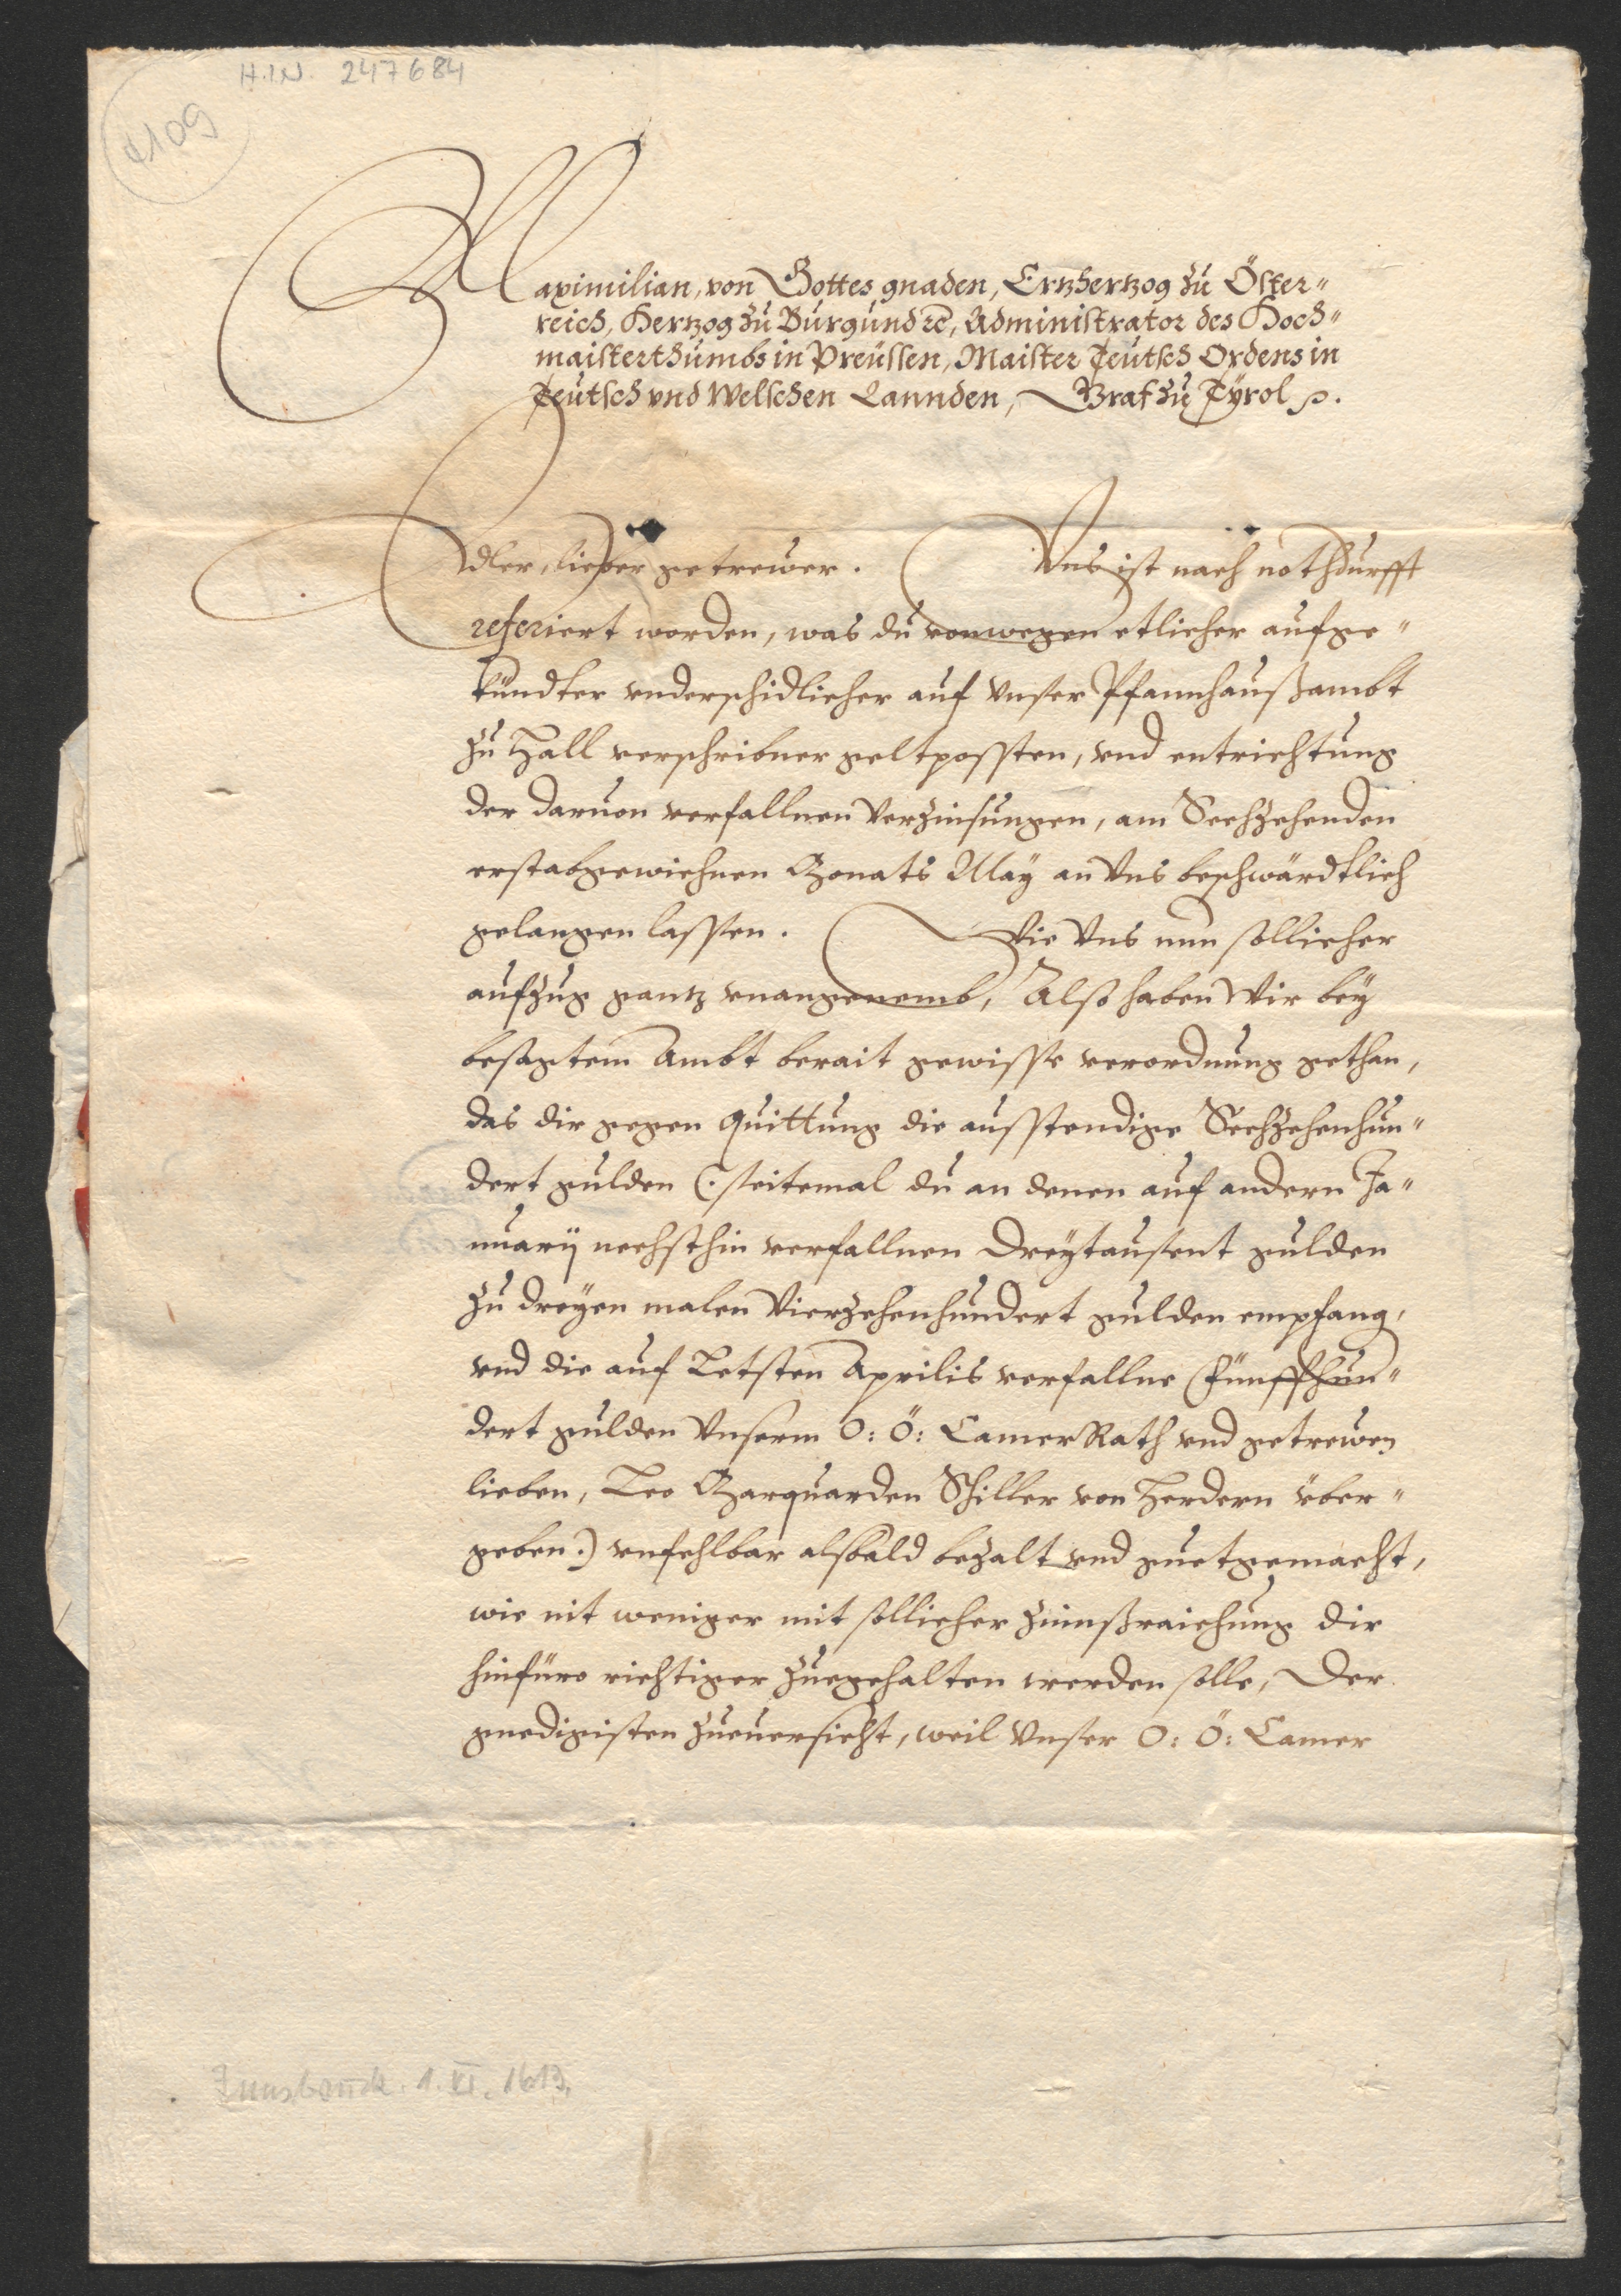 H.I.N. 247684
4109
Maximilian, von Gottes gnaden, Ertzhertzog zu Öster-
reich, Hertzog zu Burgund ꝛc, Administrator des Hoch-
maisterthumbs in Preüssen, Maister Teutsch Ordens in
Teutsch vnd Welschen Lannden, Graf zu Tÿrol ꝛc.
Edler, lieber getrewer. Vns ist nach nothdurfft
referiert worden, was du vonwegen etlicher aufge-
kündter vnderschidlicher auf vnser Pfannhaußambt
zu Hall verschribner geltpossten, vnd entrichtung
der daruon verfallnen Verzinsungen, am Sechzehenden
erstabgewichnen Monats Maÿ an Vns beschwärdtlich
gelangen lassen. Wie Vns nun sollicher
aufzug gantz vnangenemb, Also haben Wir beÿ
besagtem Ambt berait gewisse verordnung gethan,
das dir gegen Quittung die ausstendige Sechzehenhun-
dert gulden (: seitemal du an denen auf andern Ja-
nuarÿ nechsthin verfallnen Dreÿtausent gulden
zu dreÿen malen Vierzehenhundert gulden empfang,
vnd die auf Letsten Aprilis verfallne Fünffhun-
dert gulden Vnserm O: Ö: Camer Rath vnd getrewen
lieben, Leo Marquarden Schiller von Herdern über-
geben:) vnfehlbar alsbald bezalt vnd guetgemacht,
wie nit weniger mit sollicher Zinnßraichung dir
hinfüro richtiger zuegehalten werden solle, Der
gnedigisten zueuersicht, weil Vnser O: Ö: Camer
Innsbruck. 1. VI. 1613.